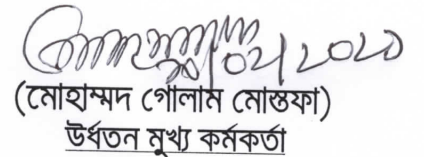 (মোহাম্মদ গোলাম মোস্তফা)
উর্ধতন মুখ্য কর্মকর্তা